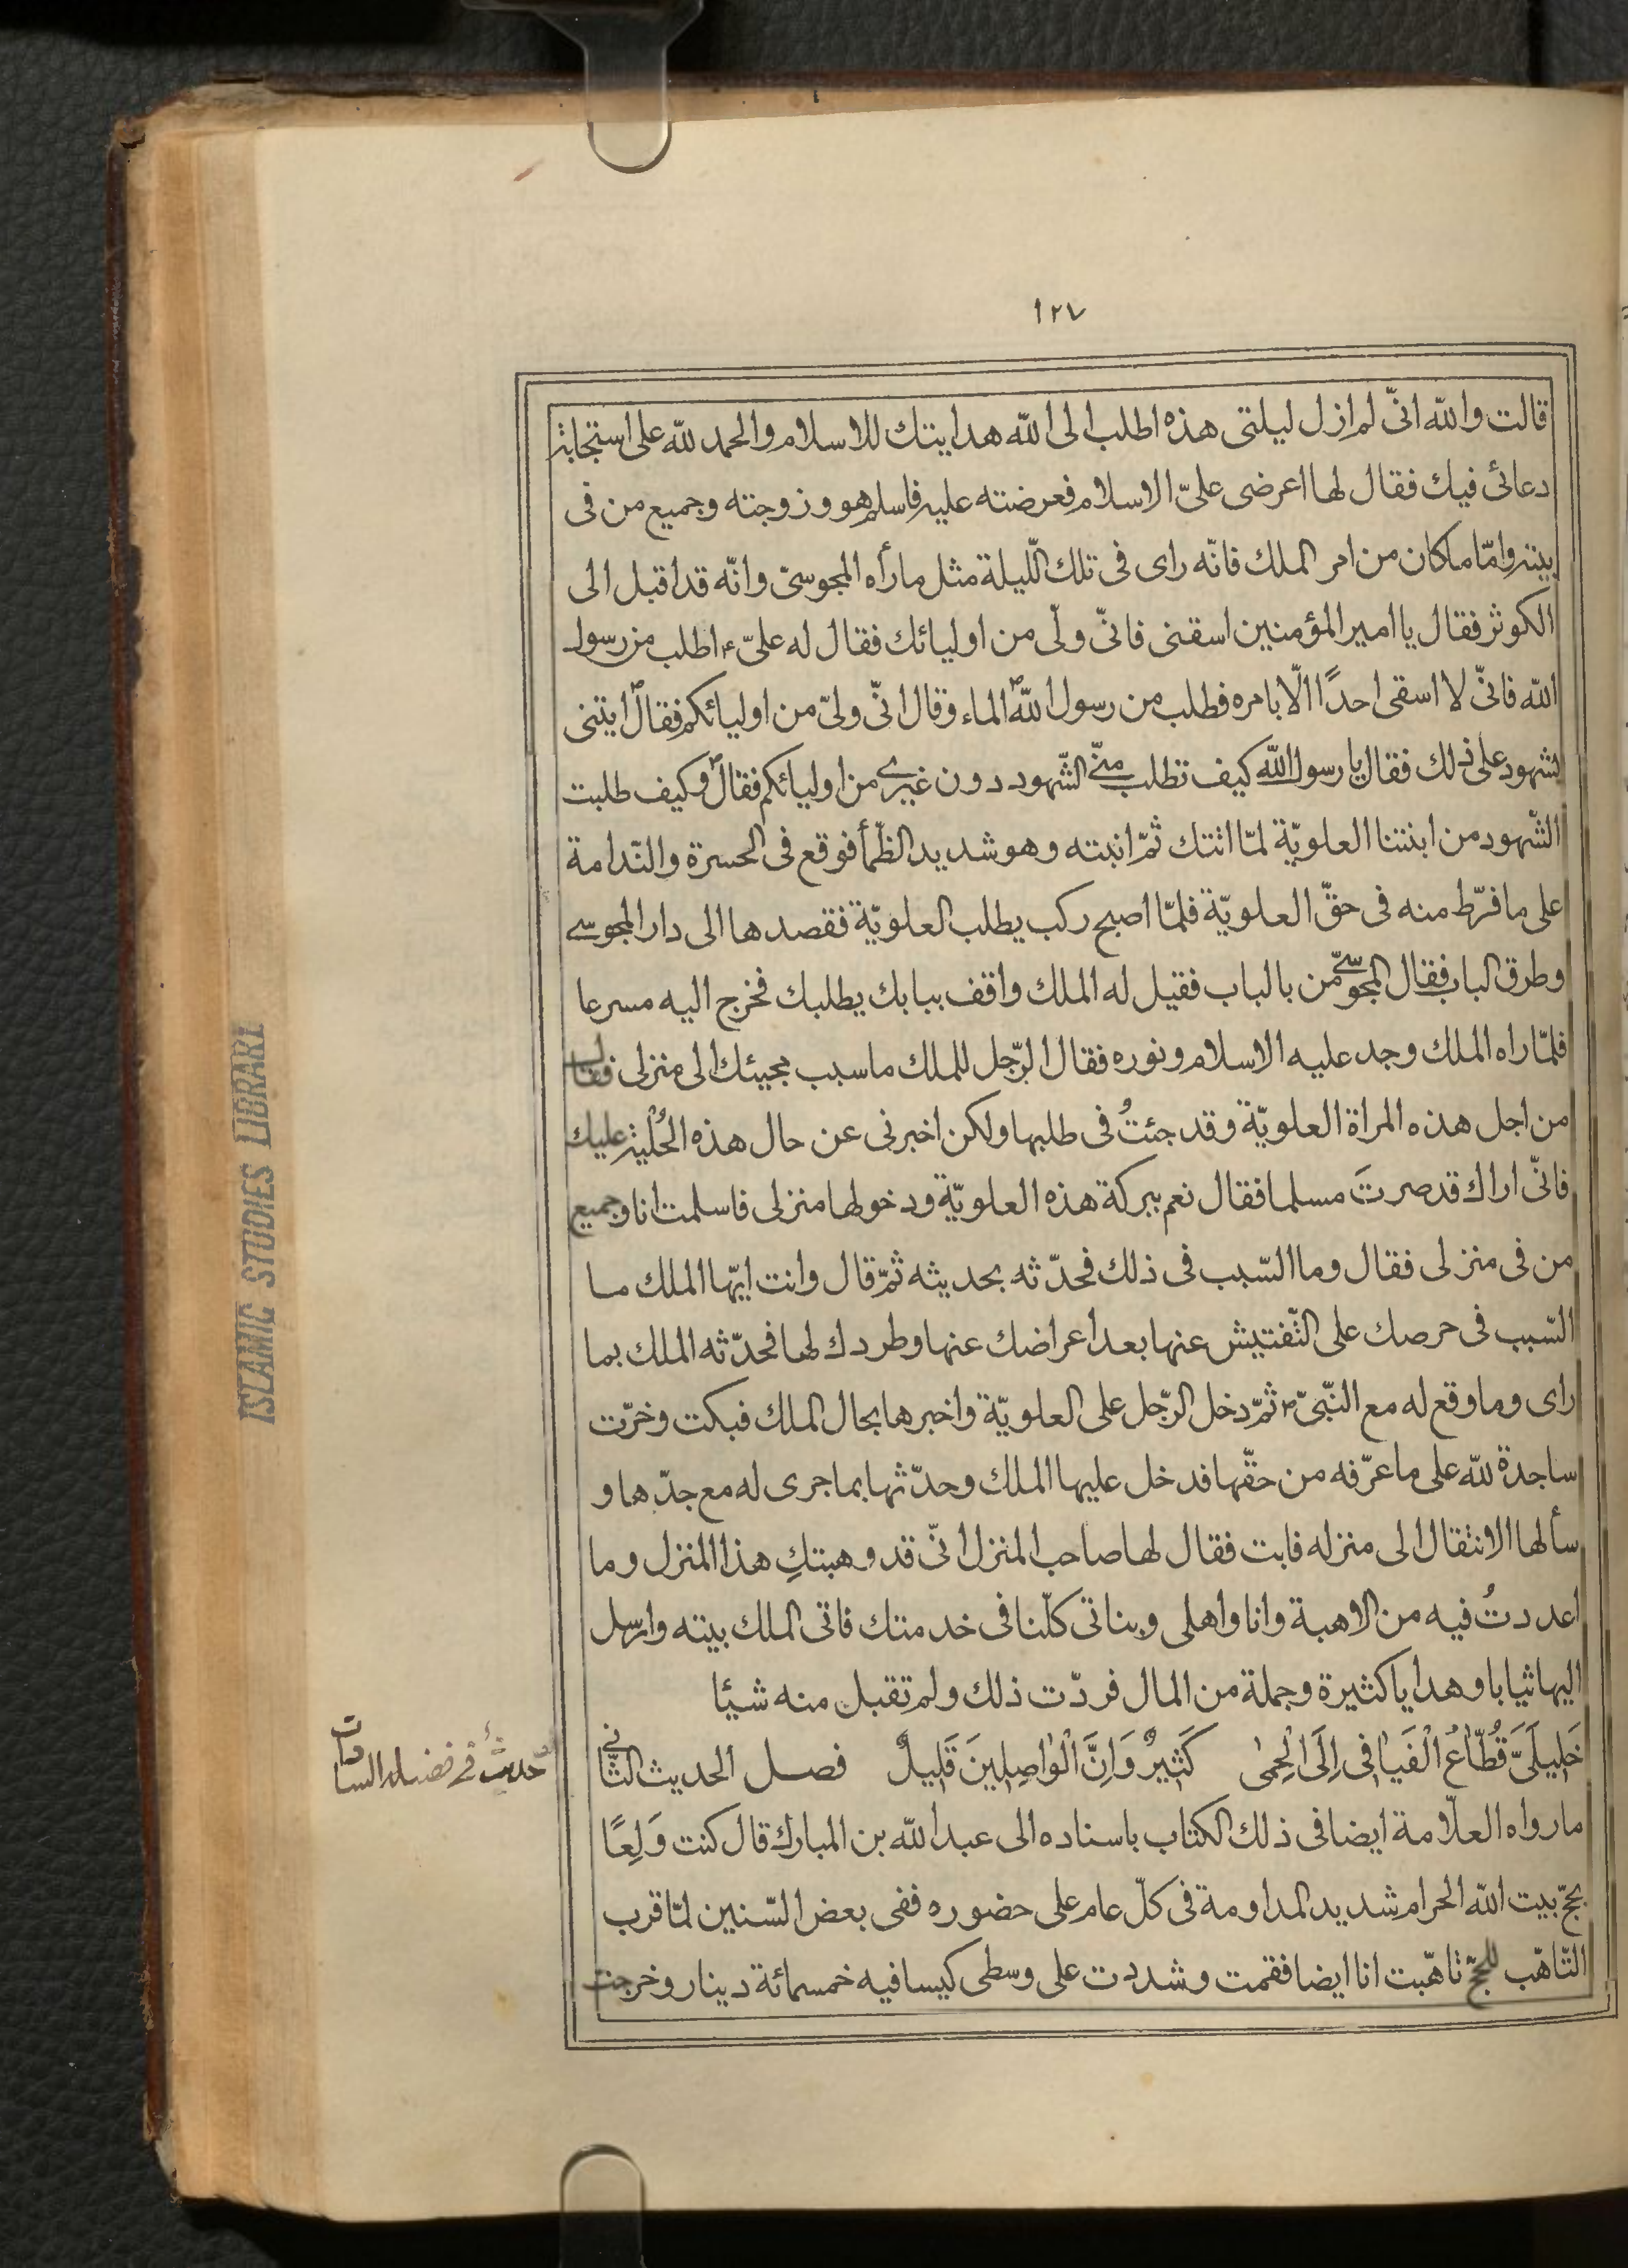 ١٢٧
قالت والله انّى لم ازل ليلتى هذه اطلب الى الله هدايتك للاسلام والحمد لله على استجابة
دعائى فيك فقال لها اعرضى علىّ الاسلام فعرضته عليه فاسلم هو وزوجته وجميع من فى
بيته وامّا ماكان من امر الملك فانّه راى فى تلك اللّيلة مثل مارأه المجوسىّ وانّه قد اقبل الى
الكوثر فقال يا امير المؤمنين اسقنى فانّى ولّى من اوليائك فقال له علىّ ع اطلب من رسول
الله فانّى لا اسقى احدًا الّا بامره فطلب من رسول الله ص الماء وقال انّى ولىّ من اوليائكم فقال ص ايتنى
بشهود على ذلك فقال يا رسول الله كيف تطلب منّى الشّهود دون غيرى من اوليائكم فقال ص وكيف طلبت
الشّهود من ابنتنا العلويّة لمّا اتتك ثمّ انتبه وهو شديد الظّمأ فوقع فى الحسرة والنّدامة
على ما فرّط منه فى حقّ العلويّة فلمّا اصبح ركب يطلب العلويّة فقصدها الى دار المجوسى
وطرق الباب فقال المجوسىّ من بالباب فقيل له الملك واقف ببابك يطلبك فخرج اليه مسرعا
فلمّا راه الملك وجد عليه الاسلام ونوره فقال الرّجل للملك ما سبب مجيئك الى منزلى فقال
من اجل هذه المراة العلويّة وقد جئتُ فى طلبها ولكن اخبرنى عن حال هذه الحُلْية عليك
فانّى اراك قد صرتَ مسلما فقال نعم ببركة هذه العلويّة ودخولها منزلى فاسلمت انا وجميع
من فى منزلى فقال وما السّبب فى ذلك فحدّثه بحديثه ثمّ قال وانت ايّها الملك ما
السّبب فى حرصك على التّفتيش عنها بعد اعراضك عنها وطردك لها فحدّثه الملك بما
راى وما وقع له مع النّبىّ ص ثمّ دخل الرّجل على العلويّة واخبرها بحال الملك فبكت وخرّت
ساجدة لله على ما عرّفه من حقّها فدخل عليها الملك وحدّثها بما جرى له مع جدّها و
سألها الانتقال الى منزله فابت فقال لها صاحب المنزل انّى قد وهبتكِ هذا المنزل وما
اعددتُ فيه من الاهبة وانا واهلى وبناتى كلّنا فى خدمتك فاتى الملك بيته وارسل
اليها ثيابا وهدايا كثيرة وجملة من المال فردّت ذلك ولم تقبل منه شيئا
خَلِيلَىَّ قُطّاعُ الْفَيافى اِلَى الْحِمىٰ كَثِيرٌ وَاِنَّ الْواصِلِينَ قَلِيلٌ فصل الحديث الثّانى
حديث فى فضيلة السادات
ما رواه العلّامة ايضا فى ذلك الكتاب باسناده الى عبد الله بن المبارك قال كنت وَلِعًا
بحجّ بيت الله الحرام شديد المداومة فى كلّ عام على حضوره ففى بعض السّنين لمّا قرب
التّاهّب للحجّ تاهّبت انا ايضا فقمت وشددت على وسطى كيسا فيه خمسمائة دينار وخرجت
ISLAMIC STUDIES LIBRARY